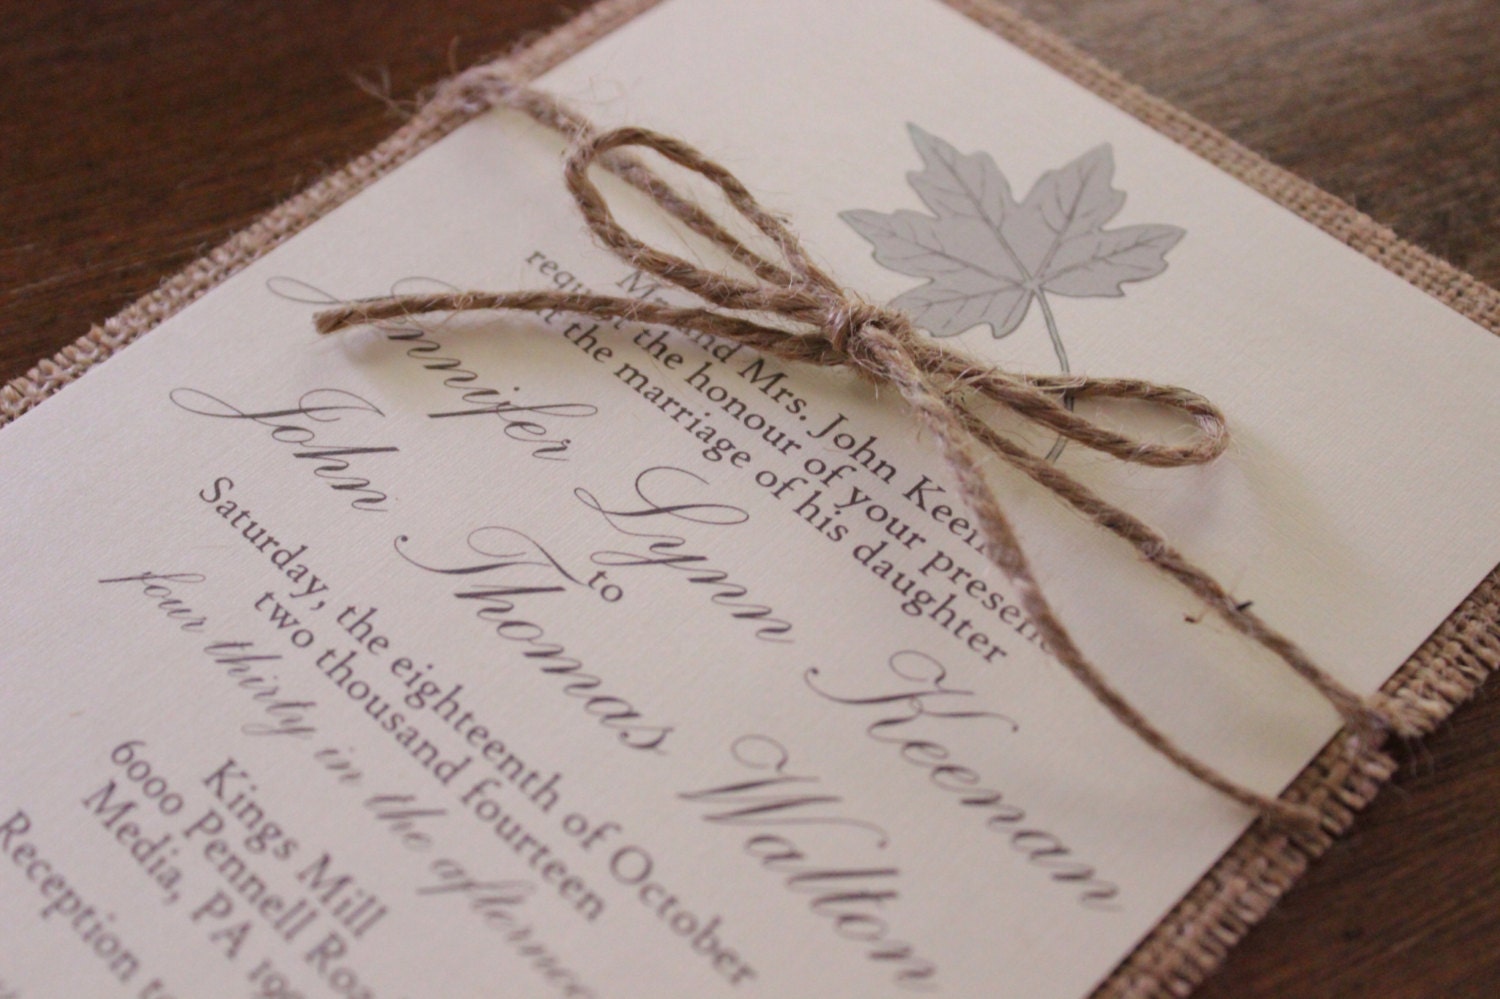 Mr. and Mrs. John Keen
request the honour of your presen
at the marriage of his daughter
Jennifer Lynn Keenan
to
John Thomas Walton
Saturday, the eighteenth of October
two thousand fourteen
four thirty in the afterno
Kings Mill
6000 Pennell Roa
Media, PA 190
Reception to